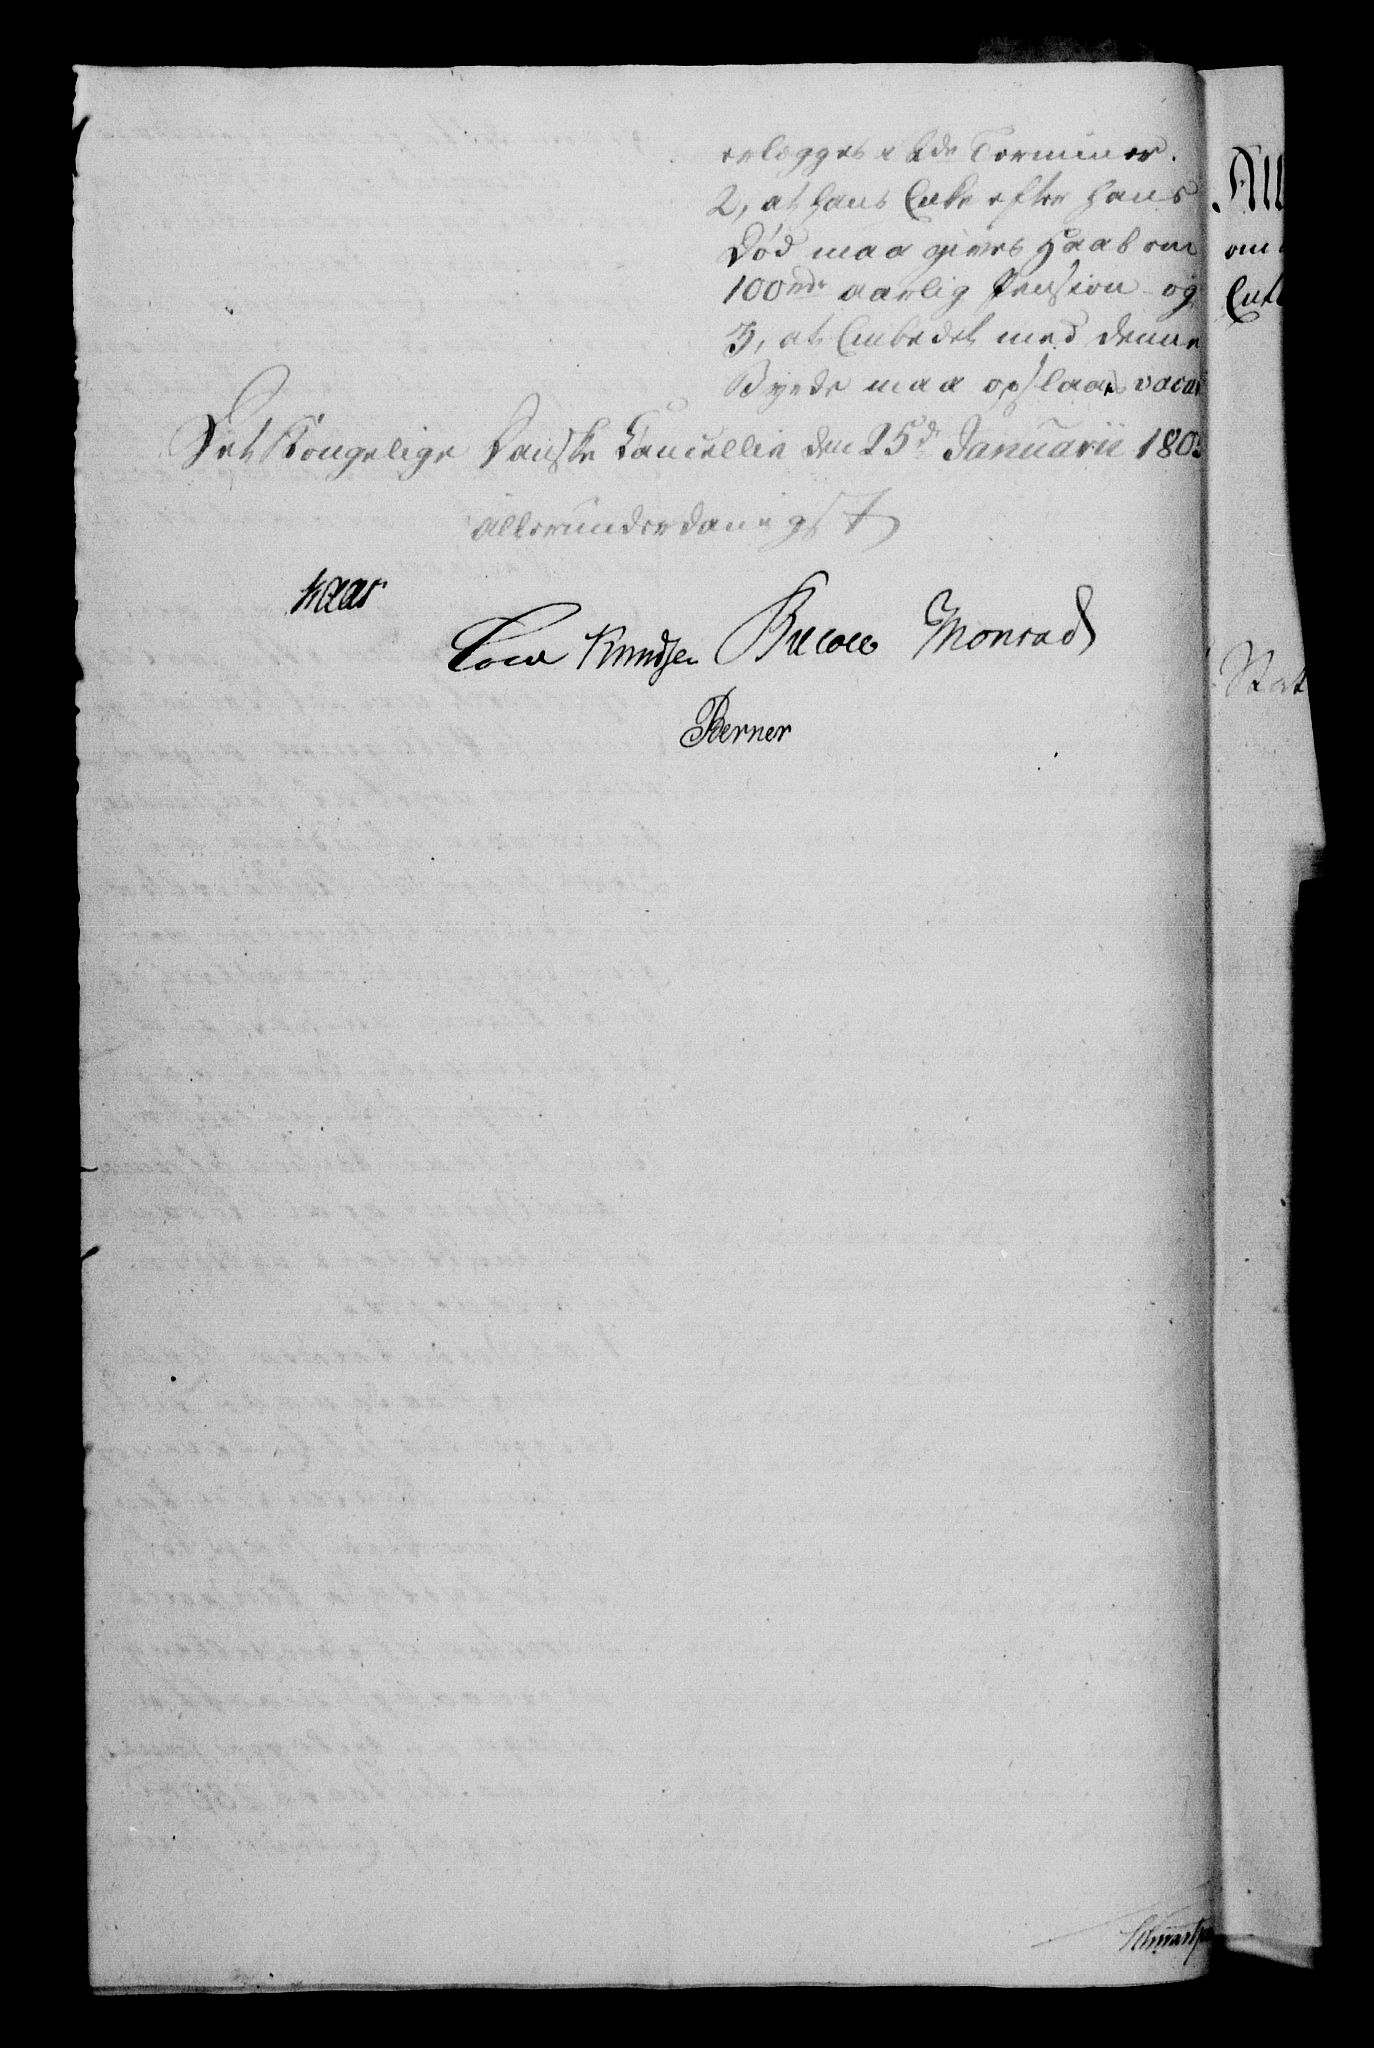 erlægges i 2de Terminer.
2, at hans Enke efter hans
Død maa gives Haab om
100 rdr aarlig Pension og
3, at Embedet med denne
Byrde maa opslaaes vacan
Det Kongelige Danske Cancellie den 25de Januarii 180
allerunderdanigst
Kaas
Cold Knudsen Bülow Monrad
Berner
All
om
Enk